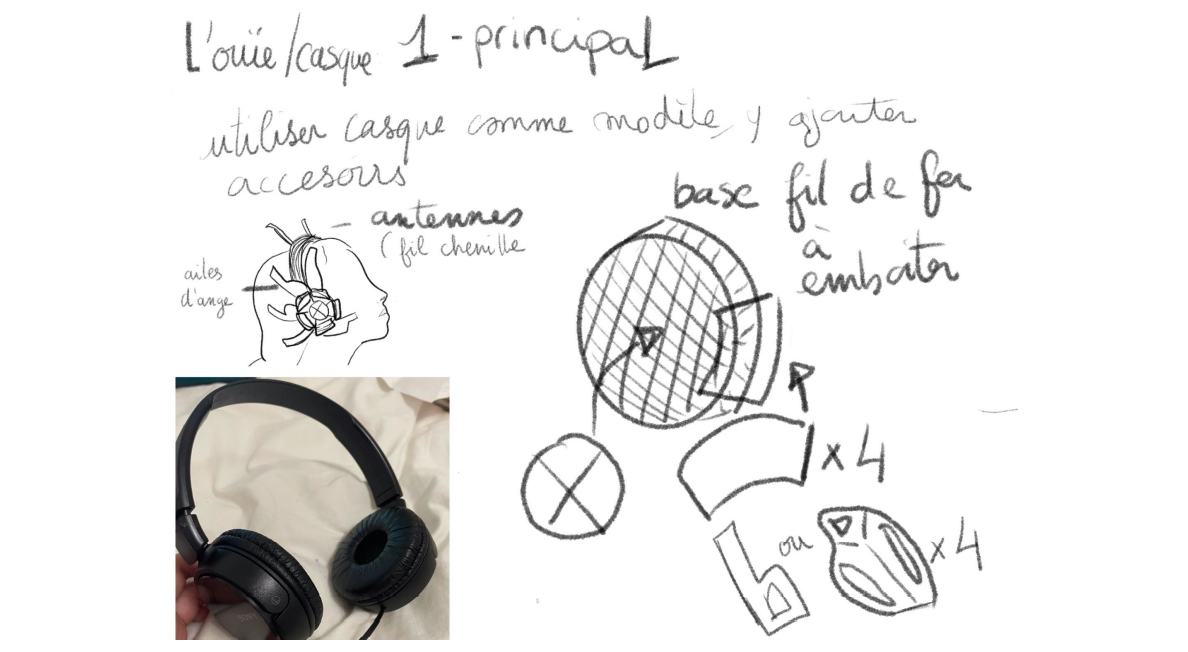 L'ouïe/casque 1-principal
utiliser casque comme modèle, y ajouter
accesoirs
antennes
(fil chenille
ailes
d'ange
base fil de fer
à
emboiter
x4
ou
x4